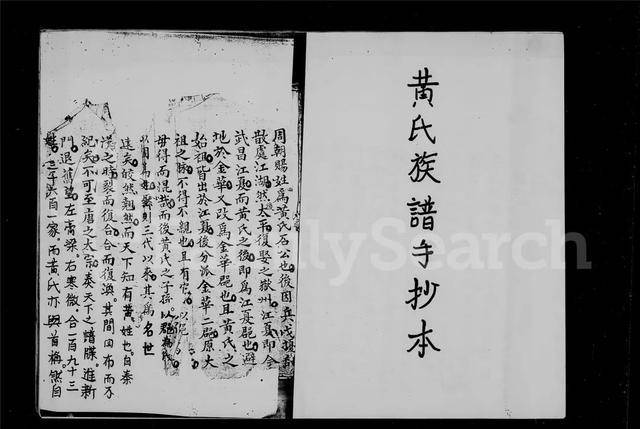 黄氏族譜手抄本
周朝賜姓爲黄氏石公也後因兵戍擾
散處江湖然太平復聚之嶽州江夏即今
武昌江夏而黄氏之後即爲江夏郡也避
地於金華又改爲金華郡也且黄氏之
始祖皆出於江夏後分派金華二郡原大
祖之脉不得不親也且有它
毋得而混哉而後黄氏之子孫以郡爲氏
以國爲姓 三代以來其爲名世
遠矣皎然魁然而天下知有黄姓也自秦
漢之時裂而復合合而復渙其間因布而不
紀矣不可至唐之太宗奏天下之譜牒進新
門退舊望左膏梁右寒微合一百九十三
姓 一家而黄氏亦與首稱然自
FamilySearch